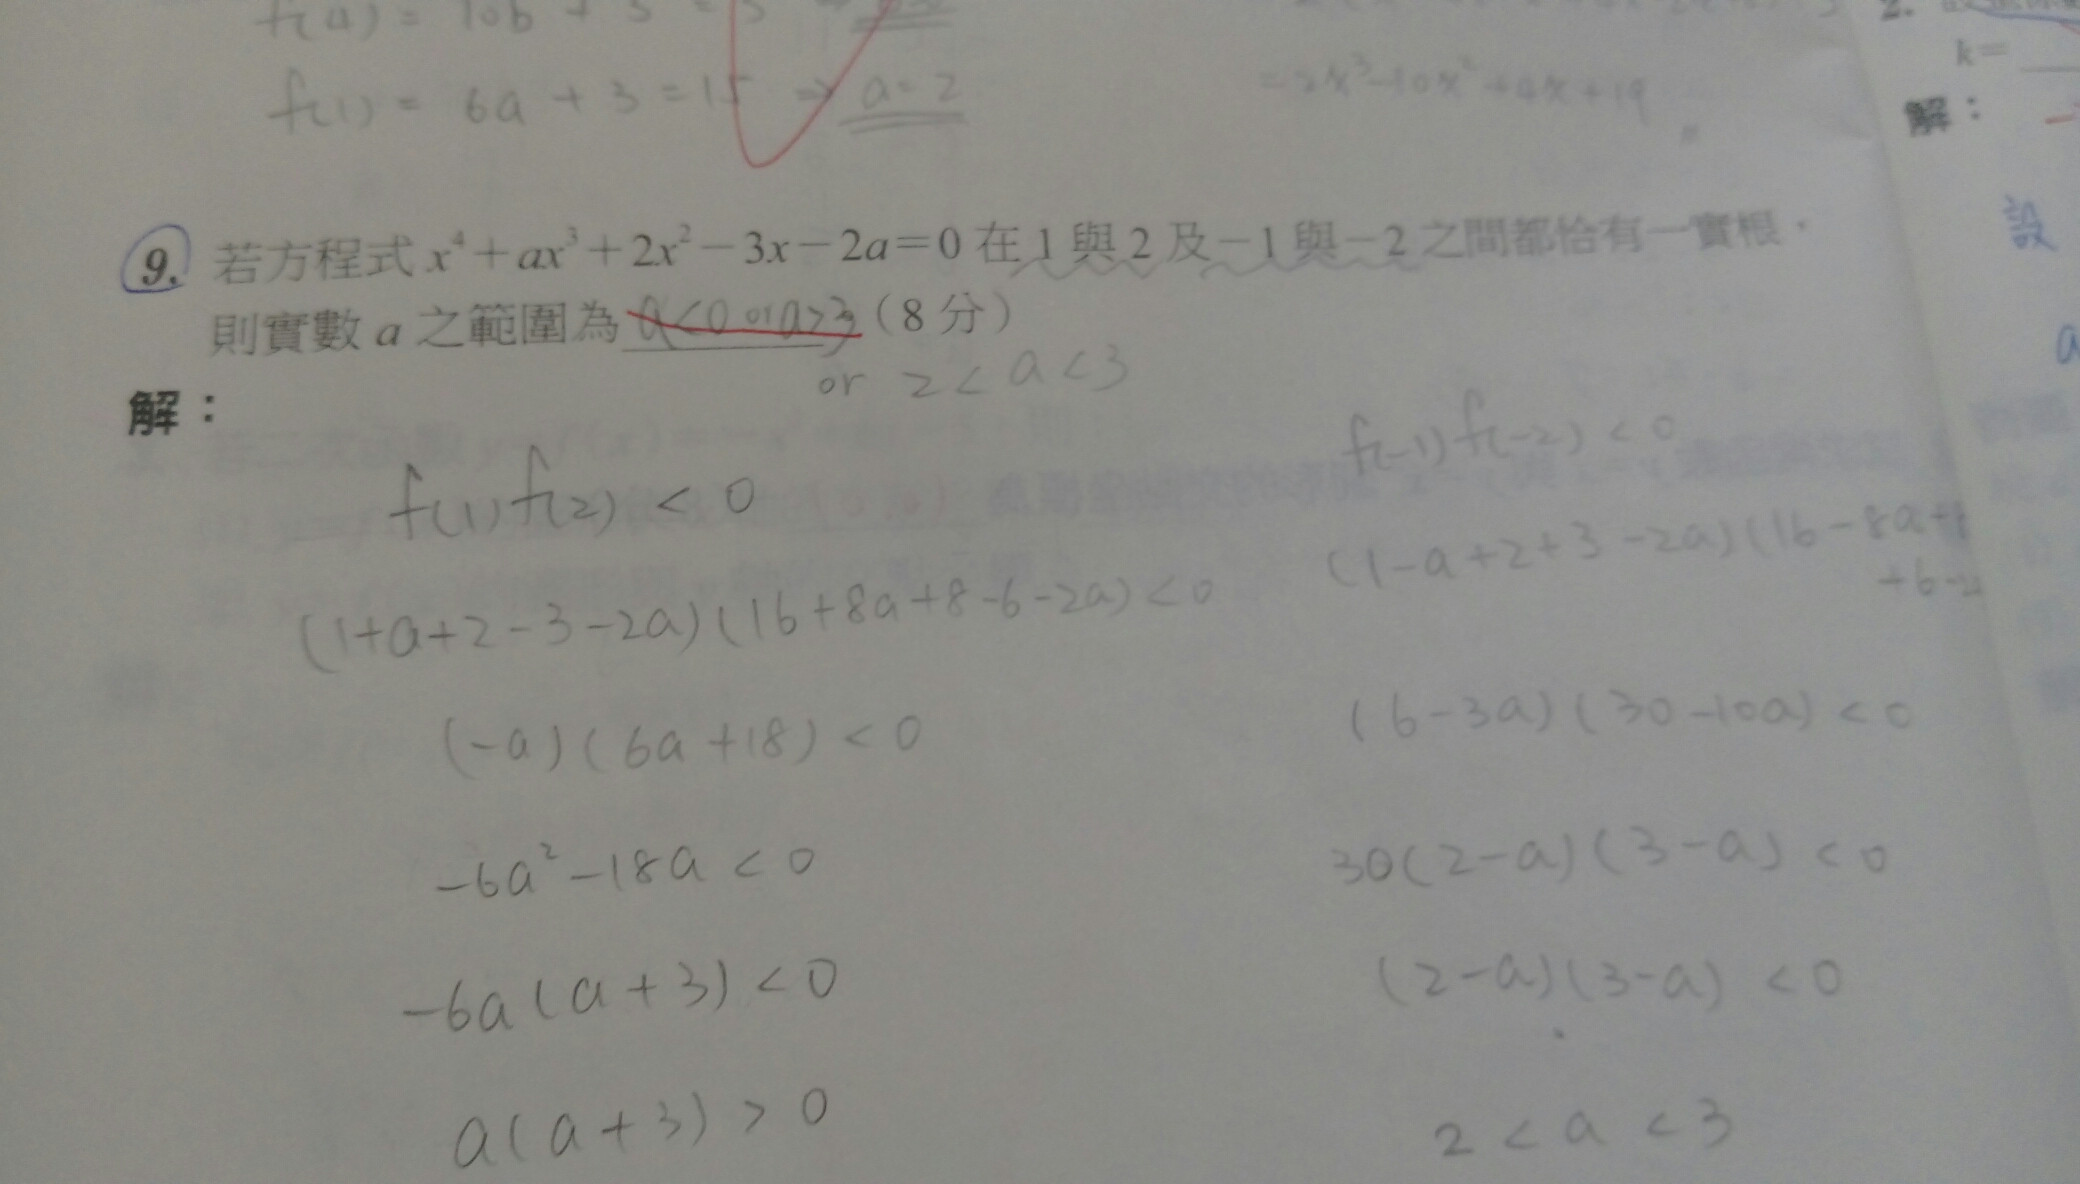 f(1) = 6a + 3 = 15 ⇒ a = 2
= 2x³-10x²+4x+19
2.
k=
解：
設
9. 若方程式 x⁴+ax³+2x²-3x-2a=0 在 1 與 2 及 -1 與 -2 之間都恰有一實根，
則實數 a 之範圍為 a<0 or a>3 (8 分)
or 2 < a < 3
a
解：
f(1) f(2) < 0
(1+a+2-3-2a)(16+8a+8-6-2a)<0
(-a)(6a+18) < 0
-6a²-18a < 0
-6a(a+3) < 0
a(a+3) > 0
f(-1) f(-2) < 0
(1-a+2+3-2a)(16-8a+8
+6-2
(6-3a)(30-10a) < 0
30(2-a)(3-a) < 0
(2-a)(3-a) < 0
2 < a < 3